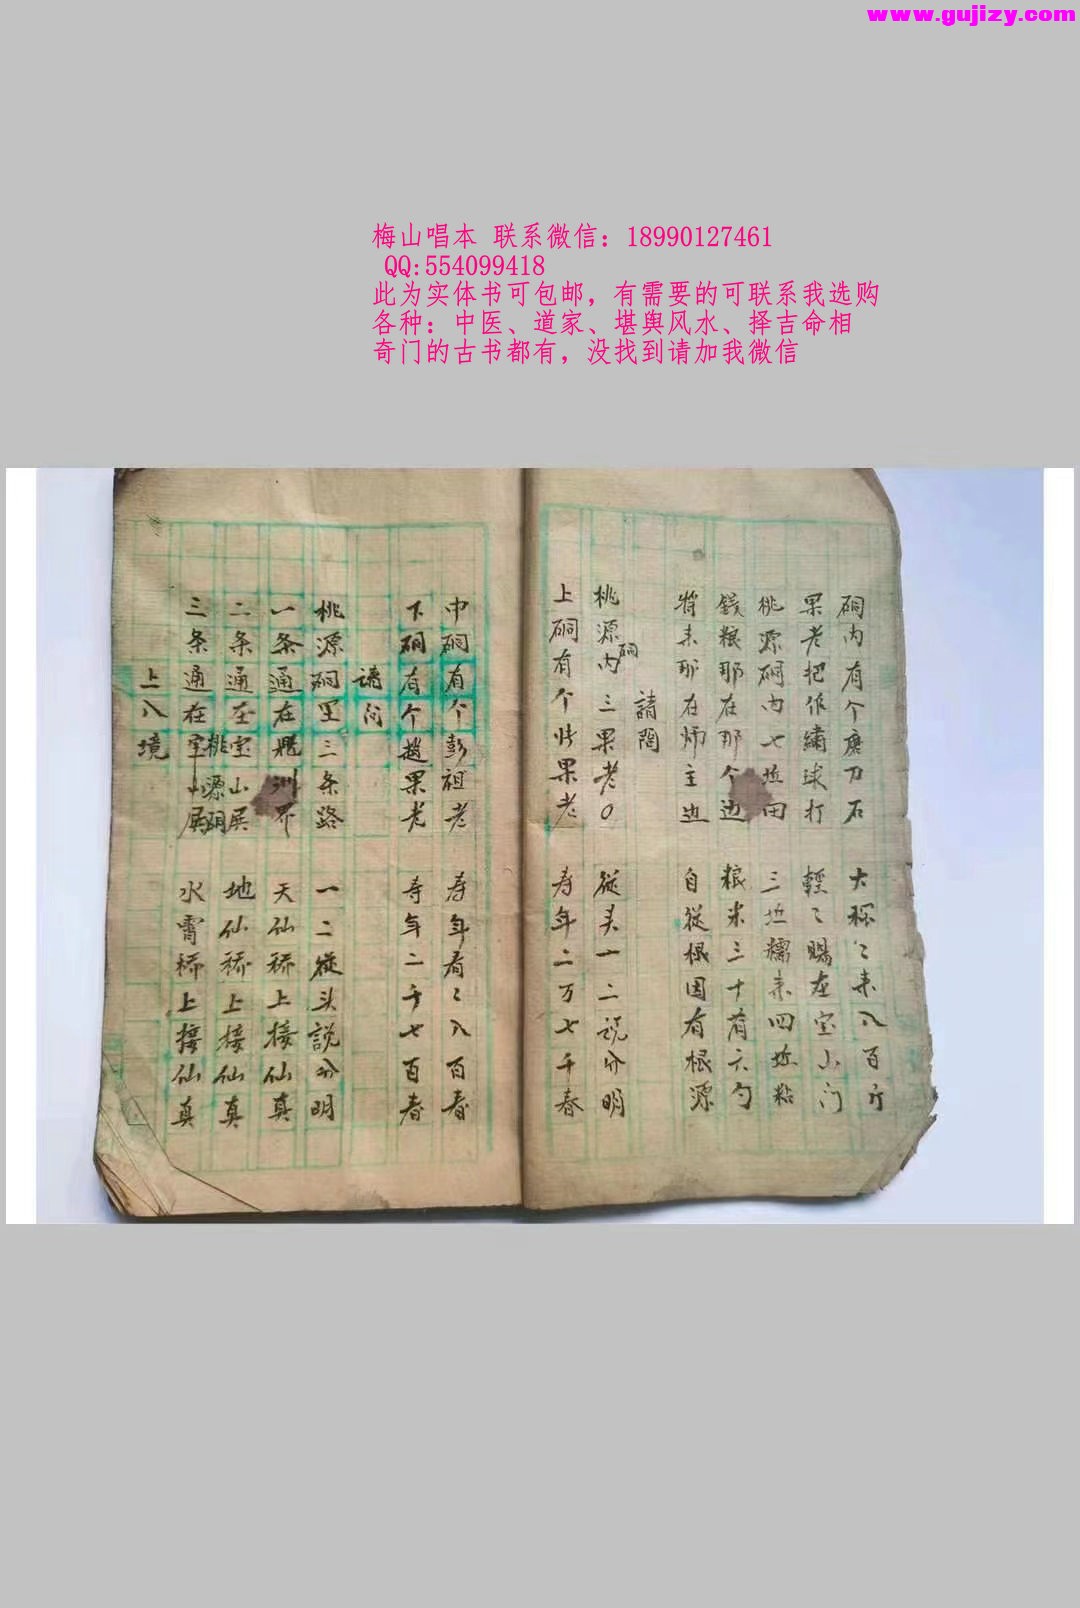 www.gujizy.com
梅山唱本 联系微信：18990127461
QQ:554099418
此为实体书可包邮，有需要的可联系我选购
各种：中医、道家、堪舆风水、择吉命相
奇门的古书都有，没找到请加我微信
硐内有个磨刀石 大秤〻来八百斤
果老把作繡球打 輕〻賜在宝山门
桃源硐内七坵田 三坵糯来四坵粘
錢粮那在那个边 粮米三十有六勺
将来那在师主边 自従根因有根源
請問
桃源硐内三果老〇 従头一二说分明
上硐有个 果老 寿年二万七千春
中硐有个彭祖老 寿年看〻八百春
下硐有个趙果老 寿年二千七百春
請问
桃源硐里三条路 一二従头説分明
一条通在 洲界 天仙桥上接仙真
二条通在宝山展 地仙桥上接仙真
三条通在 山展 水霄桥上接仙真
桃源硐
上八境